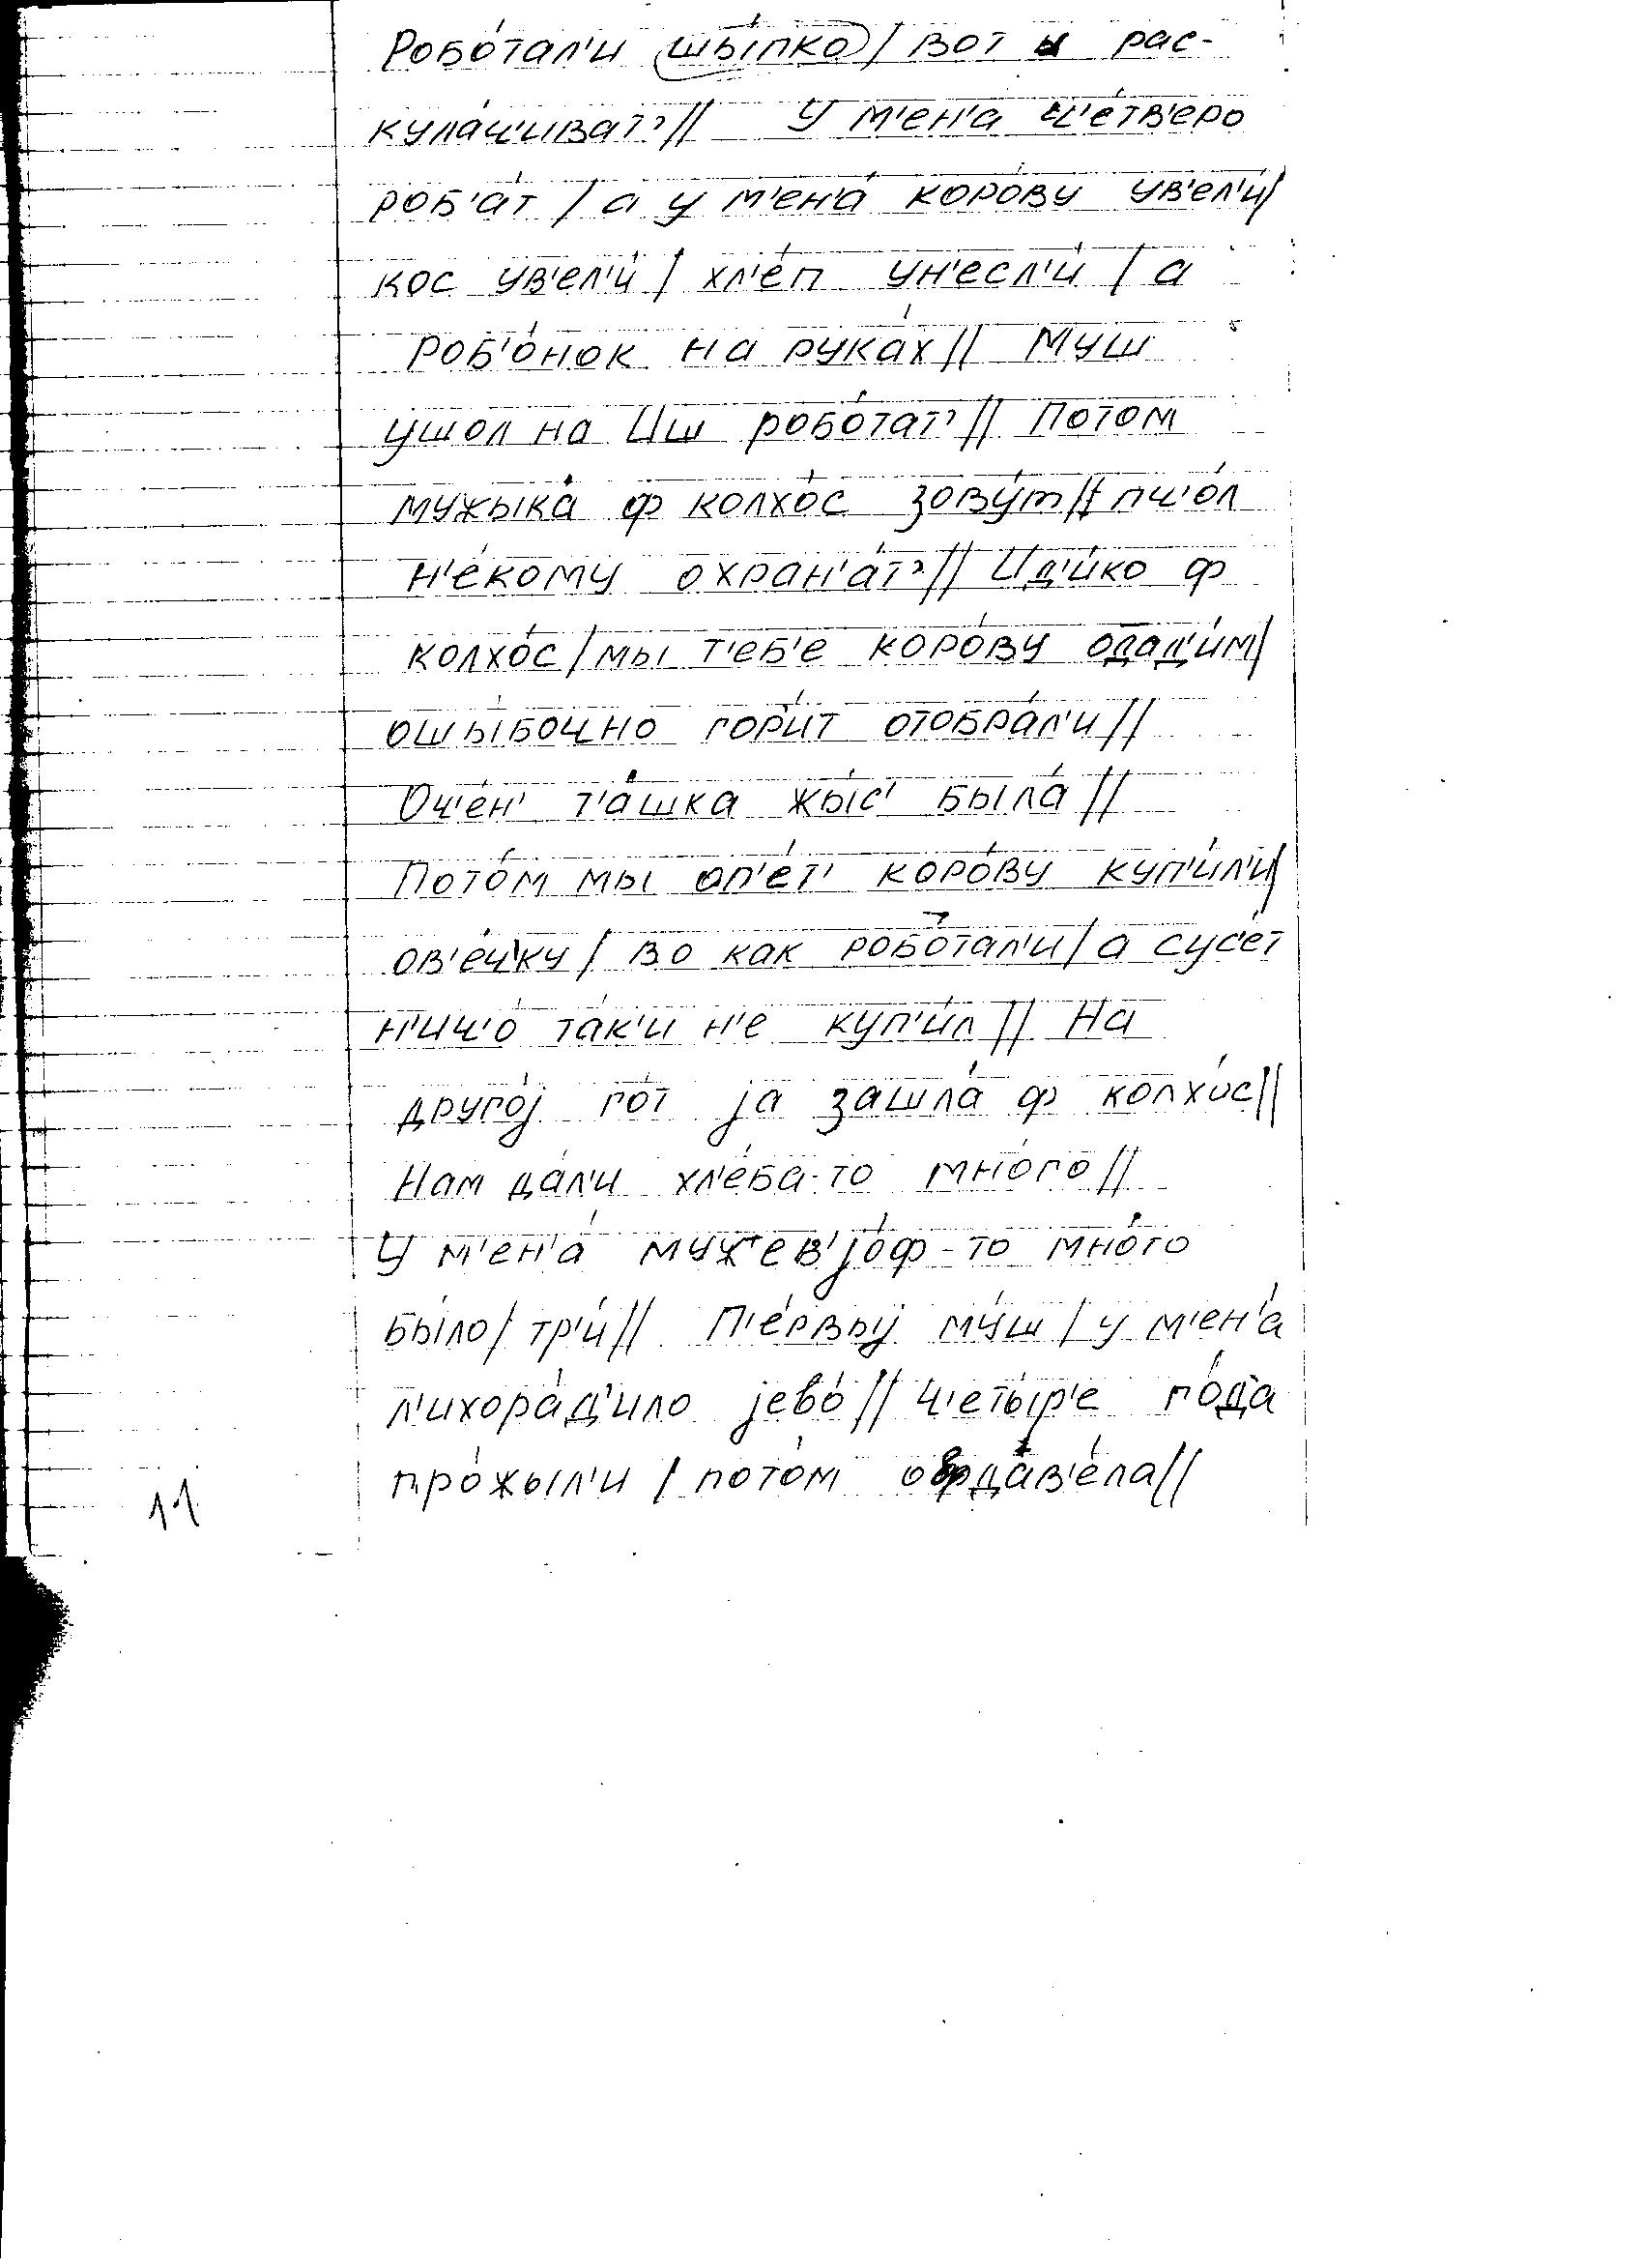 Робо́тал'и шы́пко / вот и рас-
кула́ч'иват' // У м'ен'а ч'е́тв'еро
роб'а́т / а у м'ена́ коро́ву ув'ел'и́ /
кос ув'ел'и́ / хл'е́п ун'есл'и́ / а
роб'о́нок на рука́х // Муш
ушол на Иш робо́тат' // Потом
мужыка́ ф колхо́с зову́т // пч'о́л
н'е́кому охран'а́т' // Ид'и́ко ф
колхо́с / мы т'еб'е коро́ву одад'и́м /
ошы́бочно гори́т отобра́л'и //
Оч'ен' т'а́шка жы́с' была́ //
Пото́м мы оп'е́т' коро́ву куп'и́л'и /
ов'е́ч'ку / во как робо́тал'и / а сус'е́т
н'ич'о́ та́к'и н'е куп'и́л // На
друго́j го́т jа зашла́ ф колхо́с //
Нам да́л'и хл'е́ба-то мно́го //
У м'ен'а́ муж'ев'jо́ф-то мно́го
бы́ло / тр'и́ // П'е́рвыj му́ш / у м'ен'а́
л'ихора́д'ило jево́ // Ч'еты́р'е го́да
про́жыл'и / пото́м овдав'е́ла //
11